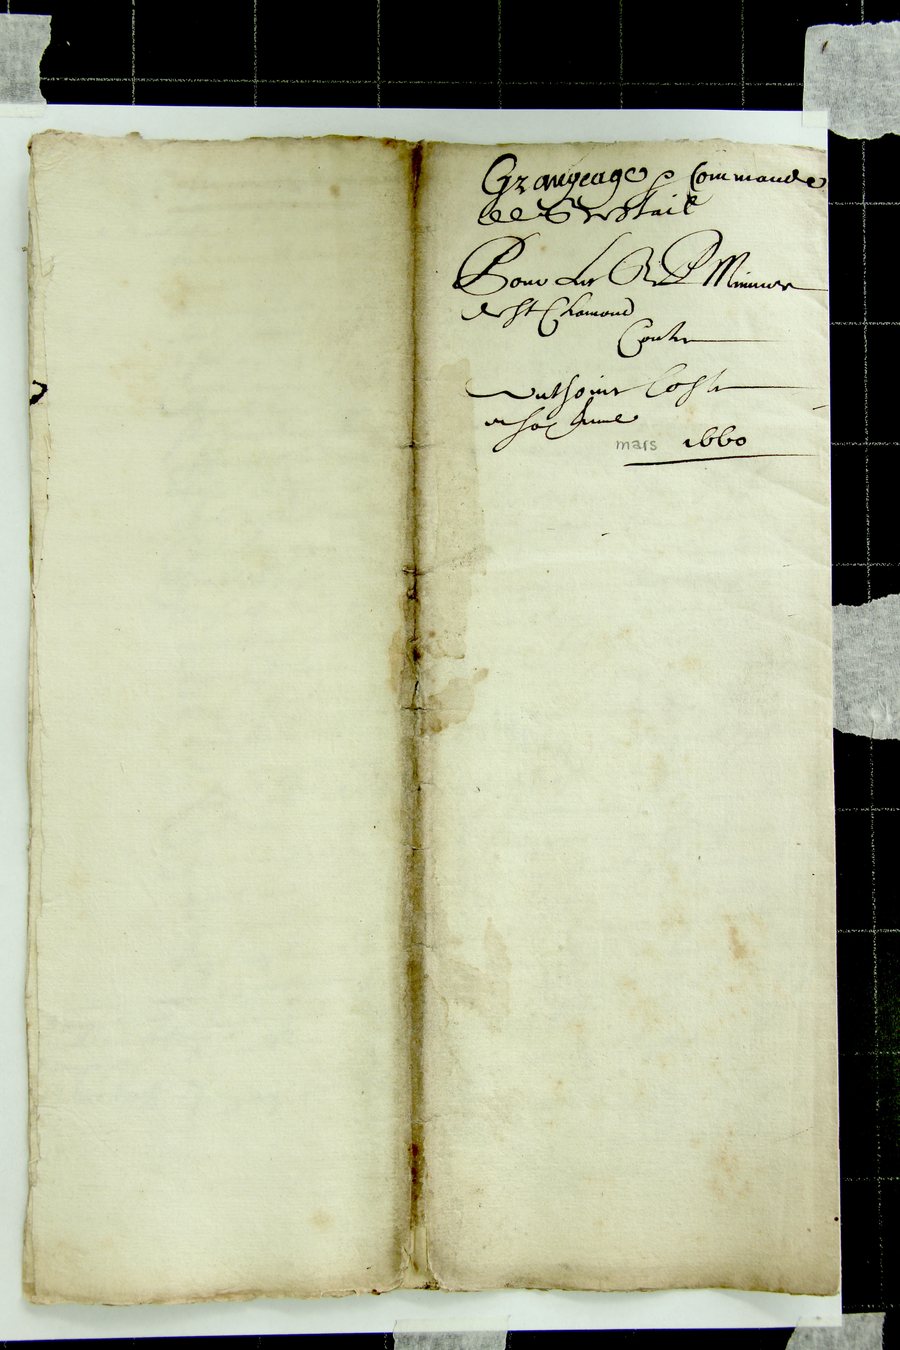 Grangeage p Commande
de Bestail
Pour Les R P Minimes
de st Chamond
Contre
Anthoine Coste
et sa femme
mars 1660